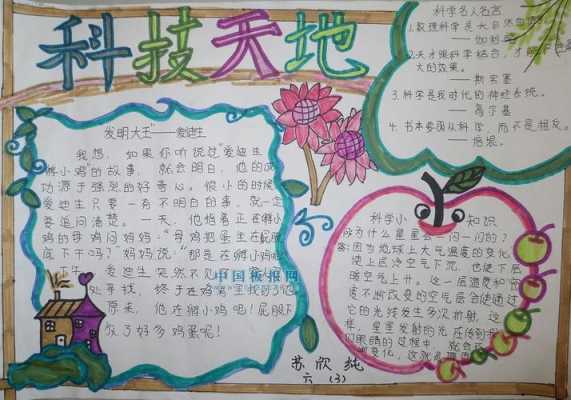 科技天地
发明大王"——爱迪生
我想，如果你听说过"爱迪生
孵小鸡"的故事，就会明白，他的成
功源于强烈的好奇心。很小的时候
爱迪生只要一有不明白的事，就一定
要追问清楚。一天，他指着正在孵小
鸡的母鸡问妈妈："母鸡把蛋坐在屁股
底下干吗？"妈妈说："那是在孵小鸡呢
爱迪生突然不见了
处寻找，终于在鸡窝里找到了他
原来，他在孵小鸡呢！屁股下
放了好多鸡蛋呢！
中国板报网
科学名人名言
1.数理科学是大自然的语言。
——伽利略
2.天才跟科学结合，才能
大的效果。
——斯宾塞
3.科学是我时代的神经系统。
——高尔基
4.书本要跟从科学，而不是相反。
——培根。
科学小知识
为什么星星会一闪一闪的？
答：因为地球上大气温度的变化，
使上层冷空气下沉，也使下层
暖空气上升。这一层温度和密
度不断改变的空气层会使通过
它的光线发生多次折射，这
样，星星发射的光在传到我
们眼睛的过程中，就会
变化，这就
苏欣纯
六（3）